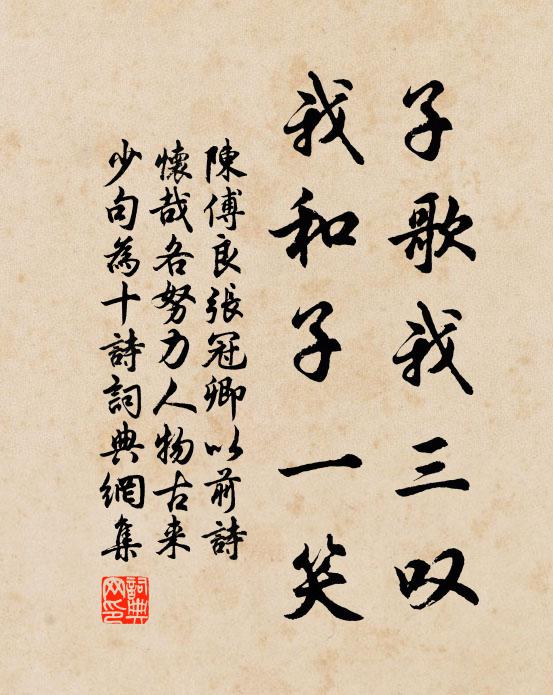 子歌我三叹
我和子一笑
陳傅良張冠卿以前詩
懷哉各努力人物古来
少句為十詩詞典網集
詞典网印